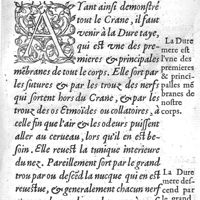 AYant ainsi demonstré
tout le Crane, il faut
venir à la Dure taye,
qui est vne des pre-
mieres & principales
mẽbranes de tout le corps. Elle sort par
les sutures & par les trouz des nerfs
qui sortent hors du Crane, & par les
trouz des os Etmoïdes ou collatoires, à
celle fin que l'air & les odeurs puissent
aller au cerueau, lors qu'il en est be-
soin. Elle reuest la tunique interieure
du nez. Pareillement sort par le grand
trou par ou descẽd la nucque qui en est
reuestue, & generalement chacun nerf
La Dure
mere est
l'vne des
premieres
& princi-
pales mẽ
branes de
nostre
corps.
La Dure
mere des-
cend par
le grand